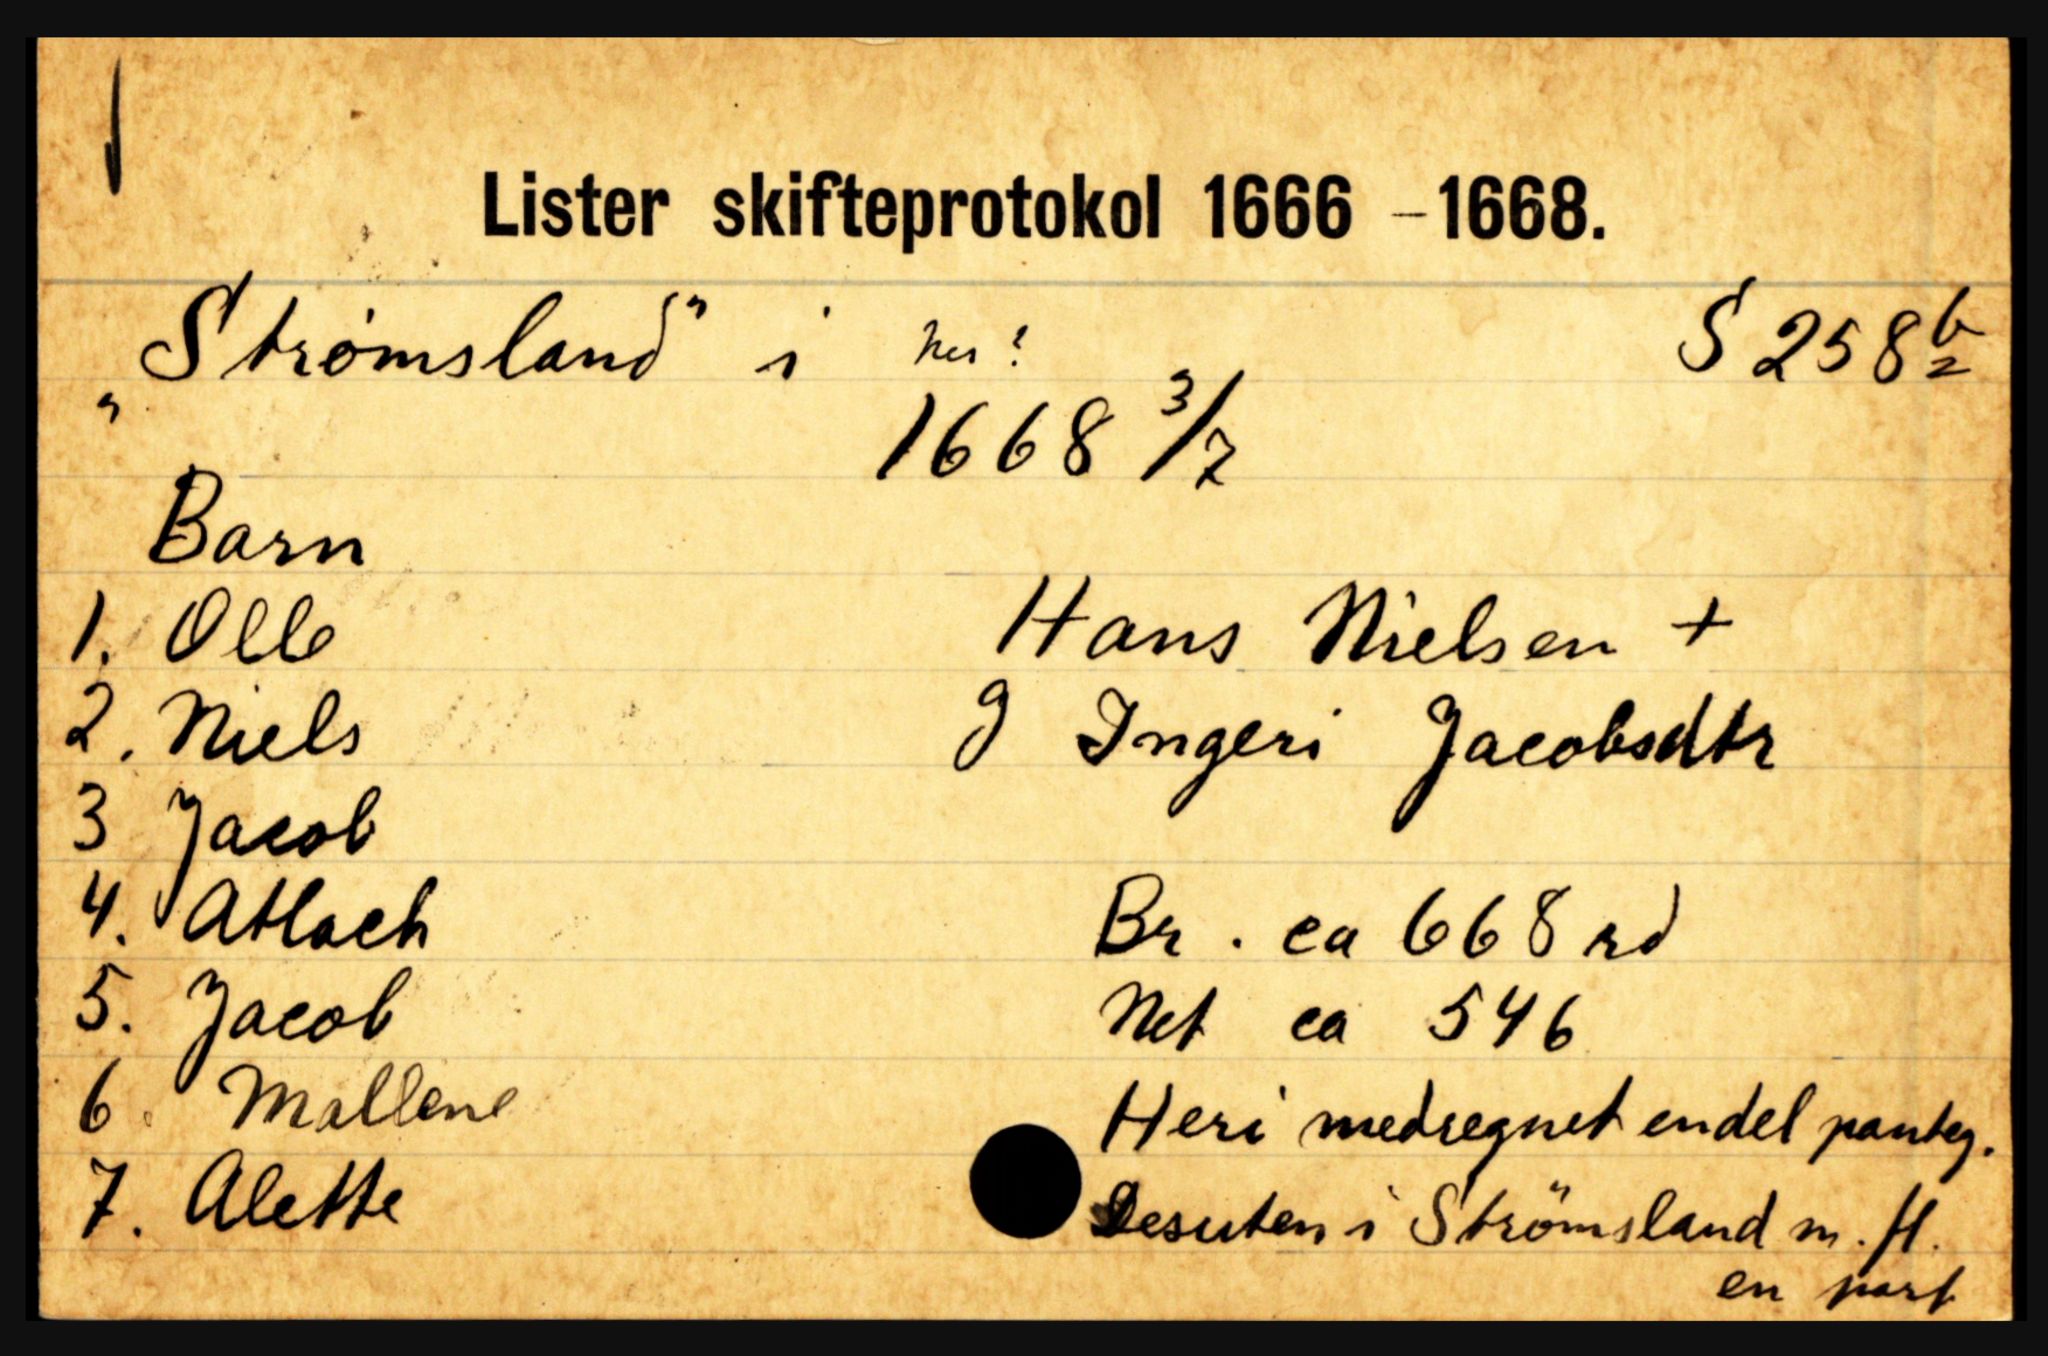 Lister skifteprotokol 1666 - 1668.
"Strømsland" i hes? S 258 b 2
1668 3/7
Barn
1. Olle Hans Nielsen +
2. Niels g Ingeri Jacobsdtr
3 Jacob
4. Atlach Br. ca 668 rd
5. Jacob Net ca 546
6. Mallene Heri medregnet endel panteg.
7. Alette Desuten i Strömsland m. fl.
en part